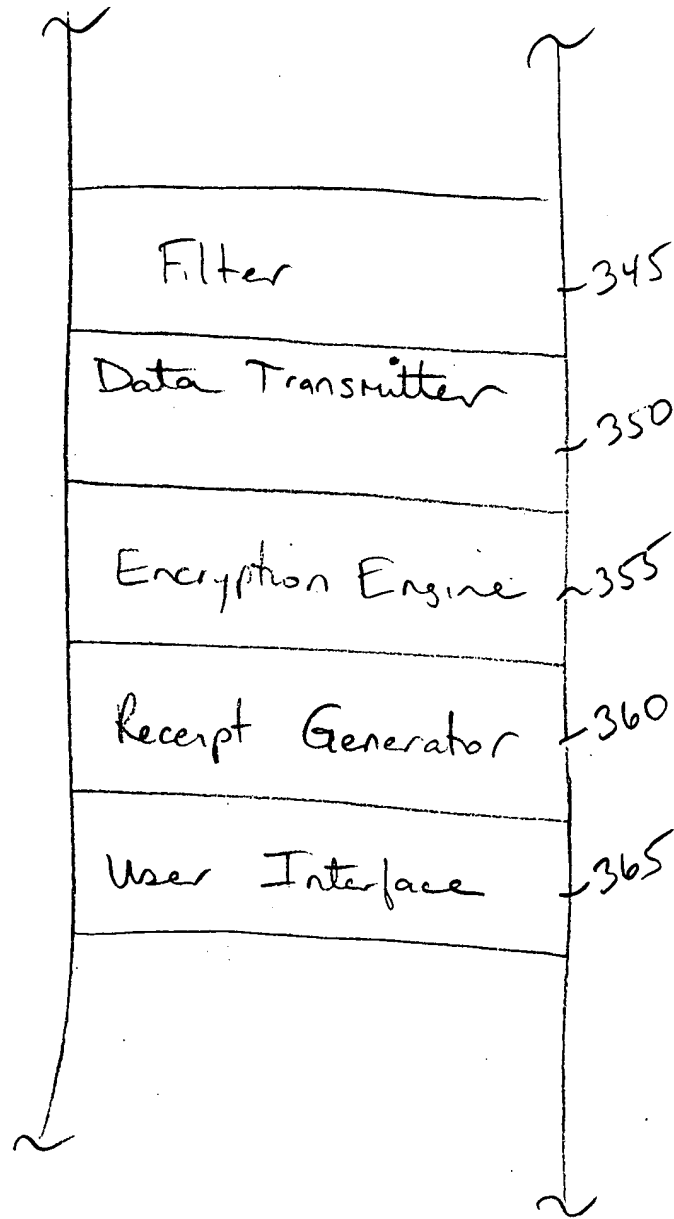 Filter 345
Data Transmitter 350
Encryption Engine 355
Receipt Generator 360
User Interface 365